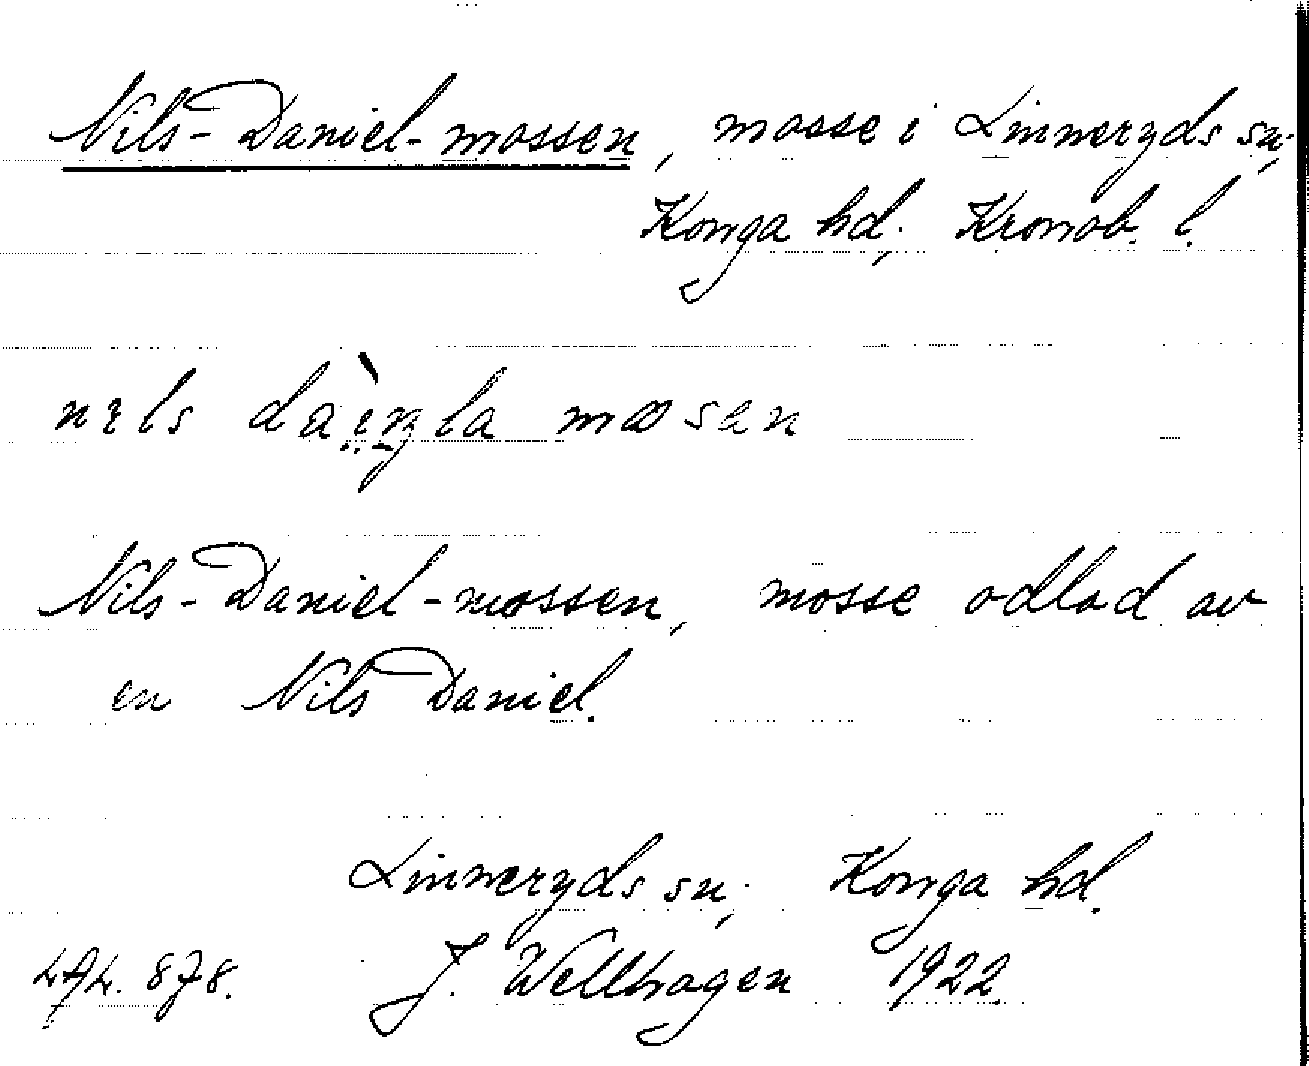 Nils-Daniel-mossen, mosse i Linneryds sn;
Konga hd; Kronob. l.
Nils-Daniel-mossen, mosse odlad av
en Nils Daniel.
Linneryds sn; Konga hd.
J. Wellhagen 1922.